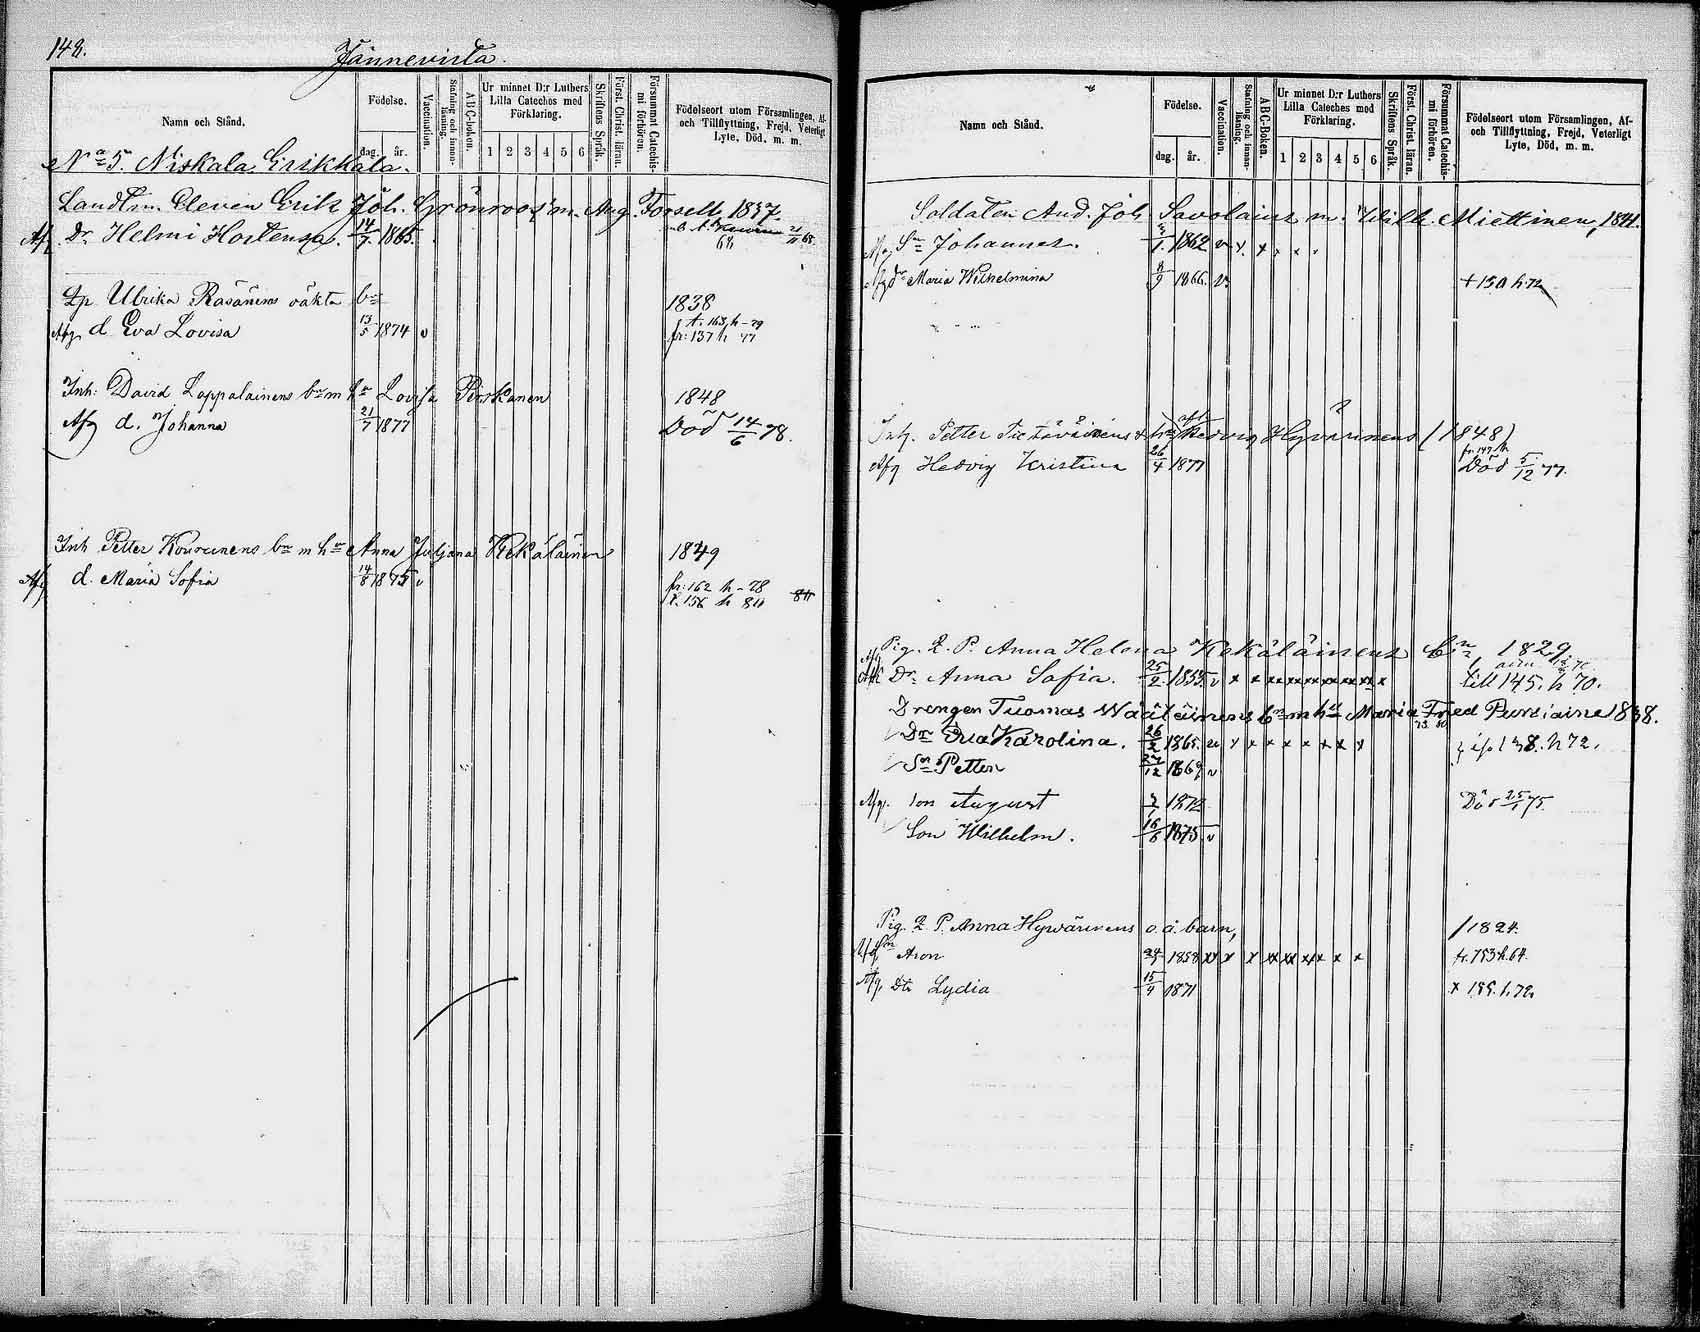 148.
Jännevirta.
Namn och Stånd.
Födelse.
dag. år.
Vaccination.
Stafning och innanläsning.
ABC-boken.
Ur minnet D:r Luthers Lilla Cateches med Förklaring.
1 2 3 4 5 6
Skriftens Språk.
Först. Christ. läran.
Försummat Catechismi förhören.
Födelseort utom Församlingen, Af- och Tillflyttning, Frejd, Veterligt Lyte, Död, m. m.
No 5. Niskala Erikkala.
Landtm. Eleven Erik Joh. Grönroos m. Aug. Forsell 1837.
Afg Dr Helmi Hortensa. 14/7 1865. 21/11 65
68
Lp Ulrika Räsänens oäkta bn 1838
Afg d. Eva Lovisa 13/5 1874 v t. 163 h - 79
fr: 137 h 77
Inh: David Lappalainens bn m hu Lovisa Pirskanen 1848
Afg d. Johanna 21/7 1877 Död 14/6 78.
Inh Petter Kourunens bn m hu Anna Juljana Kekäläinen 1849
Afg d. Maria Sofia 14/8 1875 v fr: 162 h - 78
t. 156 h 80
Namn och Stånd.
Födelse.
dag. år.
Vaccination.
Stafning och innanläsning.
ABC-Boken.
Ur minnet D:r Luthers Lilla Cateches med Förklaring.
1 2 3 4 5 6
Skriftens Språk.
Först. Christ. läran.
Försummat Catechismi förhören.
Födelseort utom Församlingen, Af- och Tillflyttning, Frejd, Veterligt Lyte, Död, m. m.
Soldaten And. Joh. Savolains m. Wilh. Miettinen, 1841.
Afg Sn Johannes. 1862 v x x . . .
Afg dr Maria Wilhelmina 8/9 1866. v. + 150 h. 72
Inh. Petter & hu Hedvig Hyvärinens (1848)
fr 147 h
Afg Hedvig Kristina 26/4 1877 Död 5/12 77.
Pig. L. P. Anna Helena Kekäläinens bn 1829.
Afg Dr Anna Sofia. 25/2 1853. v x x xx xx xx xx xx x till 145. h 70.
Drengen Tuomas Wäätäinens bn m hu Maria Fred 1838.
Dr Eva Karolina. 26/2 1865. v x x x x x x x x 138. h 72.
Sn Petter 27/12 1869 v
Afg. son August 1872 Död 25/ 75.
Son Wilhelm. 16/6 1875 v
Pig. L. P. Anna Hyvärinens o. ä. barn, /1824.
Afg Son Aron 1858 xx x x xx xx xx x x fr. 753 h. 64.
Afg. Dtr Lydia 15/4 1871